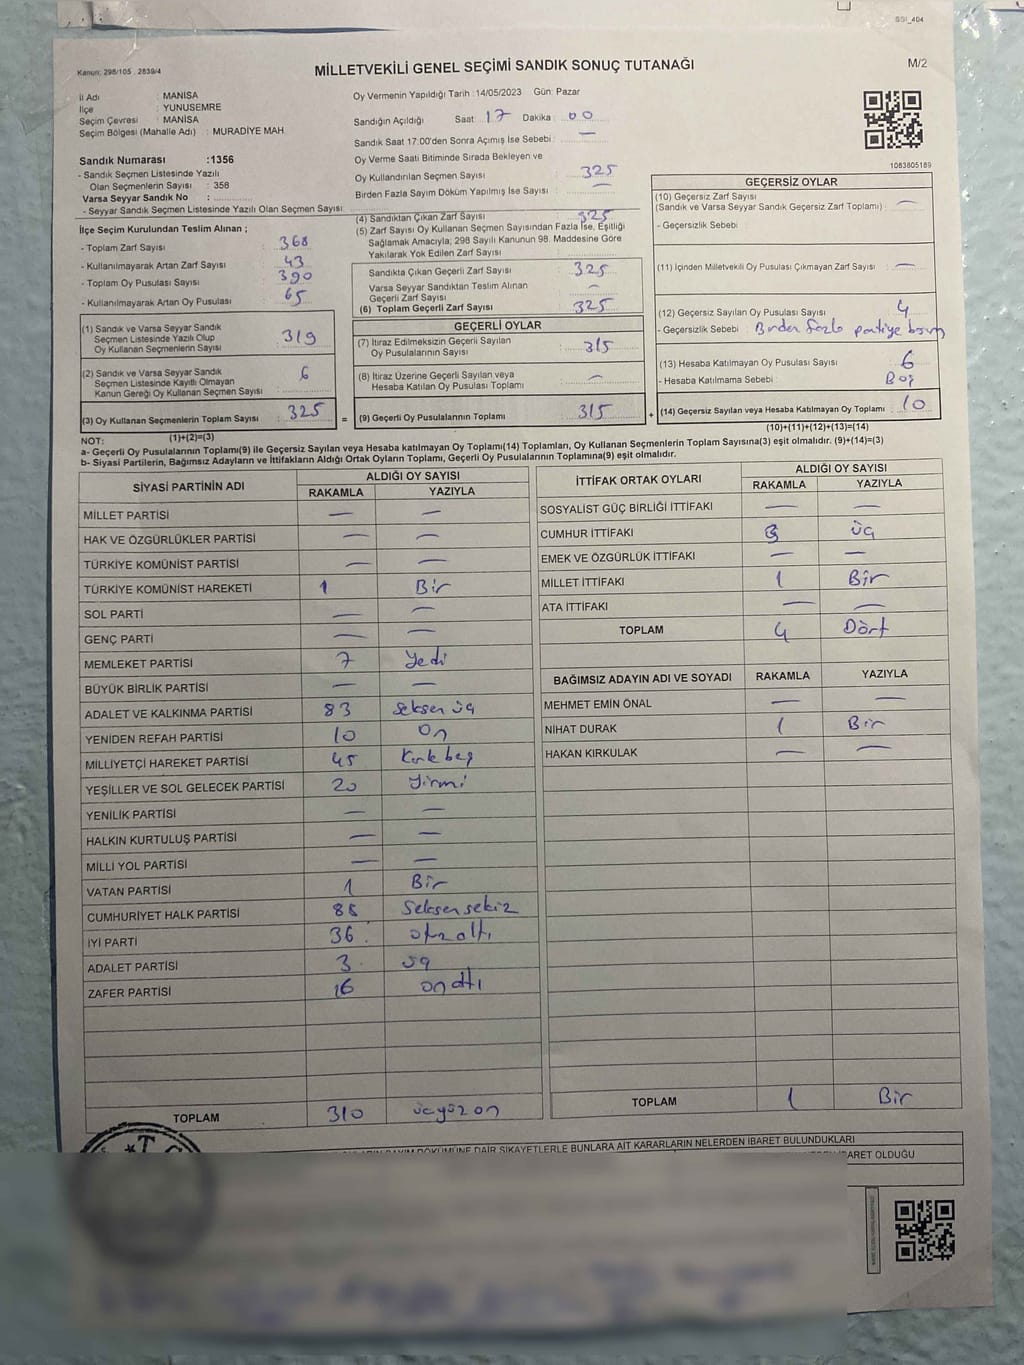 SSI_404
Kanun: 298/105 . 2839/4
MİLLETVEKİLİ GENEL SEÇİMİ SANDIK SONUÇ TUTANAĞI
M/2
İl Adı : MANİSA
İlçe : YUNUSEMRE
Seçim Çevresi : MANİSA
Seçim Bölgesi (Mahalle Adı) : MURADİYE MAH.
Oy Vermenin Yapıldığı Tarih : 14/05/2023 Gün: Pazar
Sandığın Açıldığı Saat 17 Dakika : 00
Sandık Saat 17:00'den Sonra Açımış İse Sebebi : —
Oy Verme Saati Bitiminde Sırada Bekleyen ve
Oy Kullandırılan Seçmen Sayısı : 325
Birden Fazla Sayım Döküm Yapılmış İse Sayısı : —
1083805189
Sandık Numarası :1356
- Sandık Seçmen Listesinde Yazılı
Olan Seçmenlerin Sayısı : 358
Varsa Seyyar Sandık No :
- Seyyar Sandık Seçmen Listesinde Yazılı Olan Seçmen Sayısı:
İlçe Seçim Kurulundan Teslim Alınan ;
- Toplam Zarf Sayısı : 368
- Kullanılmayarak Artan Zarf Sayısı : 43
- Toplam Oy Pusulası Sayısı : 390
- Kullanılmayarak Artan Oy Pusulası : 65
(1) Sandık ve Varsa Seyyar Sandık
Seçmen Listesinde Yazılı Olup
Oy Kullanan Seçmenlerin Sayısı : 319
(2) Sandık ve Varsa Seyyar Sandık
Seçmen Listesinde Kayıtlı Olmayan
Kanun Gereği Oy Kullanan Seçmen Sayısı : 6
(3) Oy Kullanan Seçmenlerin Toplam Sayısı : 325 =
(1)+(2)=(3)
(4) Sandıktan Çıkan Zarf Sayısı : 325
(5) Zarf Sayısı Oy Kullanan Seçmen Sayısından Fazla İse, Eşitliği
Sağlamak Amacıyla; 298 Sayılı Kanunun 98. Maddesine Göre
Yakılarak Yok Edilen Zarf Sayısı :
Sandıkta Çıkan Geçerli Zarf Sayısı : 325
Varsa Seyyar Sandıktan Teslim Alınan
Geçerli Zarf Sayısı : —
(6) Toplam Geçerli Zarf Sayısı : 325
GEÇERLİ OYLAR
(7) İtiraz Edilmeksizin Geçerli Sayılan
Oy Pusulalarının Sayısı : 315
(8) İtiraz Üzerine Geçerli Sayılan veya
Hesaba Katılan Oy Pusulası Toplamı : —
(9) Geçerli Oy Pusulalarının Toplamı : 315 +
GEÇERSİZ OYLAR
(10) Geçersiz Zarf Sayısı
(Sandık ve Varsa Seyyar Sandık Geçersiz Zarf Toplamı) : —
- Geçersizlik Sebebi :
(11) İçinden Milletvekili Oy Pusulası Çıkmayan Zarf Sayısı : —
(12) Geçersiz Sayılan Oy Pusulası Sayısı : 4
- Geçersizlik Sebebi : Birden fazla partiye basım
(13) Hesaba Katılmayan Oy Pusulası Sayısı : 6
- Hesaba Katılmama Sebebi : Boş
(14) Geçersiz Sayılan veya Hesaba Katılmayan Oy Toplamı : 10
(10)+(11)+(12)+(13)=(14)
NOT:
a- Geçerli Oy Pusulalarının Toplamı(9) ile Geçersiz Sayılan veya Hesaba katılmayan Oy Toplamı(14) Toplamları, Oy Kullanan Seçmenlerin Toplam Sayısına(3) eşit olmalıdır. (9)+(14)=(3)
b- Siyasi Partilerin, Bağımsız Adayların ve İttifakların Aldığı Ortak Oyların Toplamı, Geçerli Oy Pusulalarının Toplamına(9) eşit olmalıdır.
SİYASİ PARTİNİN ADI ALDIĞI OY SAYISI
RAKAMLA YAZIYLA
MİLLET PARTİSİ — —
HAK VE ÖZGÜRLÜKLER PARTİSİ — —
TÜRKİYE KOMÜNİST PARTİSİ — —
TÜRKİYE KOMÜNİST HAREKETİ 1 Bir
SOL PARTİ — —
GENÇ PARTİ — —
MEMLEKET PARTİSİ 7 Yedi
BÜYÜK BİRLİK PARTİSİ — —
ADALET VE KALKINMA PARTİSİ 83 Seksen üç
YENİDEN REFAH PARTİSİ 10 On
MİLLİYETÇİ HAREKET PARTİSİ 45 Kırk beş
YEŞİLLER VE SOL GELECEK PARTİSİ 20 Yirmi
YENİLİK PARTİSİ — —
HALKIN KURTULUŞ PARTİSİ — —
MİLLİ YOL PARTİSİ — —
VATAN PARTİSİ 1 Bir
CUMHURİYET HALK PARTİSİ 88 Seksen sekiz
İYİ PARTİ 36 otuz altı
ADALET PARTİSİ 3 üç
ZAFER PARTİSİ 16 on altı
TOPLAM 310 üçyüz on
İTTİFAK ORTAK OYLARI ALDIĞI OY SAYISI
RAKAMLA YAZIYLA
SOSYALİST GÜÇ BİRLİĞİ İTTİFAKI — —
CUMHUR İTTİFAKI 3 üç
EMEK VE ÖZGÜRLÜK İTTİFAKI — —
MİLLET İTTİFAKI 1 Bir
ATA İTTİFAKI — —
TOPLAM 4 Dört
BAĞIMSIZ ADAYIN ADI VE SOYADI RAKAMLA YAZIYLA
MEHMET EMİN ÖNAL — —
NİHAT DURAK 1 Bir
HAKAN KIRKULAK — —
TOPLAM 1 Bir
DÖKÜMÜNE DAİR ŞİKAYETLERLE BUNLARA AİT KARARLARIN NELERDEN İBARET BULUNDUKLARI
İBARET OLDUĞU
T.C.